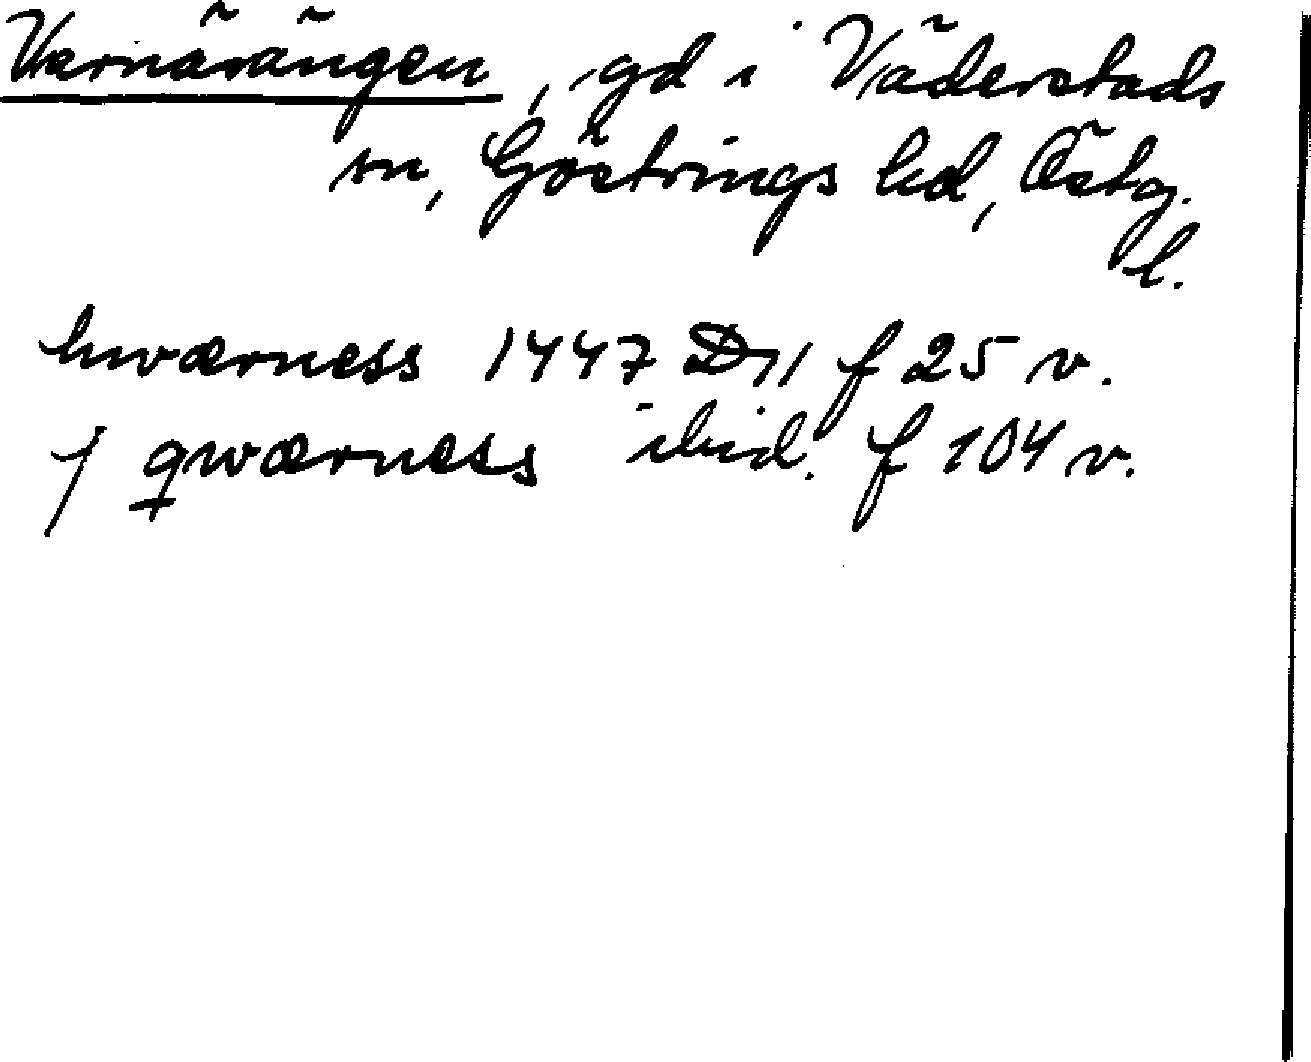 Varnäsängen, gd i Väderstads
sn, Göstrings hd, Östg.
l.
hwærness 1447 D11 f 25 v.
j qwærness ibid. f 104 v.